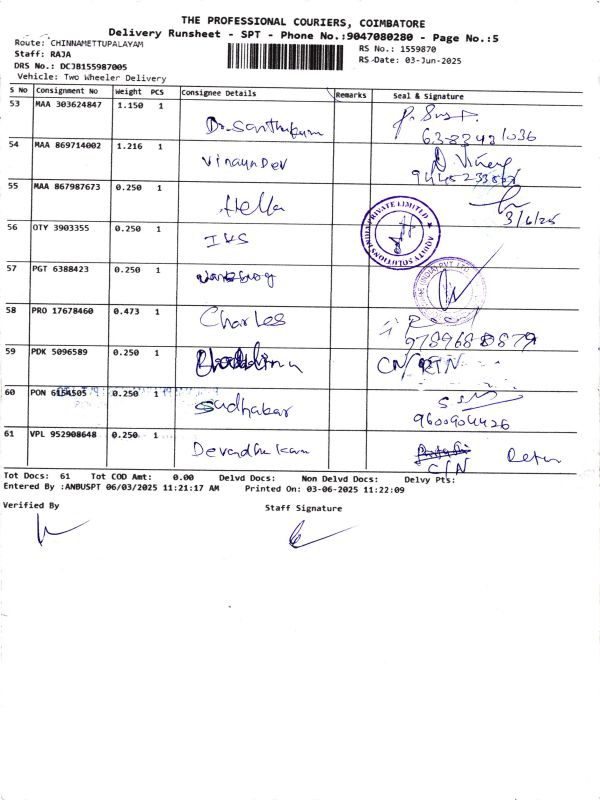 THE PROFESSIONAL COURIERS, COIMBATORE
Delivery Runsheet - SPT - Phone No.:9047080280 - Page No.:5
Route: CHINNAMETTUPALAYAM
Staff: RAJA
RS No.: 1559870
DRS No.: DCJB155987005
RS Date: 03-Jun-2025
Vehicle: Two Wheeler Delivery
S No Consignment No Weight PCS Consignee Details Remarks Seal & Signature
53 MAA 303624847 1.150 1 Dr. Santhikum
54 MAA 869714002 1.216 1 VinaynDev
55 MAA 867987673 0.250 1 Hella 3/6/25
56 OTY 3903355 0.250 1 AQUITY SOLUTIONS INDIA PRIVATE LIMITED
57 PGT 6388423 0.250 1
58 PRO 17678460 0.473 1 Charles
59 PDK 5096589 0.250 1 CN/RTN
60 PON 6154505 0.250 1 Sudhakar 9600904426
61 VPL 952908648 0.250 1 C/N
Tot Docs: 61 Tot COD Amt: 0.00 Delvd Docs: Non Delvd Docs: Delvy Pts:
Entered By :ANBUSPT 06/03/2025 11:21:17 AM Printed On: 03-06-2025 11:22:09
Verified By Staff Signature